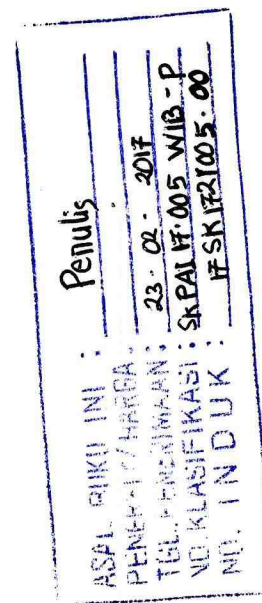 ASAL BUKU INI : Penulis
PENERBIT/HARGA :
TGL. PENERIMAAN : 23 . 02 . 2017
NO. KLASIFIKASI : SK PAI 17.005 WIB - P
NO. INDUK : 17 SK 1721005.00